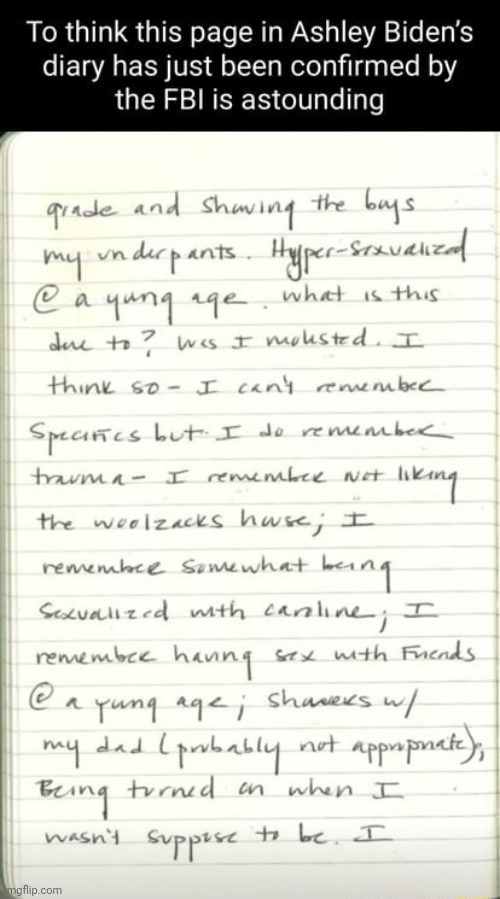 To think this page in Ashley Biden's
diary has just been confirmed by
the FBI is astounding
grade and showing the boys
my underpants. Hyper-Sexualized
@ a yung age. what is this
due to? Was I molested. I
think so - I can't remember
Specifics but I do remember
trauma - I remember not liking
the woolzacks house; I
remember somewhat being
Sexualized with caroline; I
remember having sex with Friends
@ a yung age; showers w/
my dad (probably not appropriate);
Being turned on when I
wasn't suppose to be. I
imgflip.com